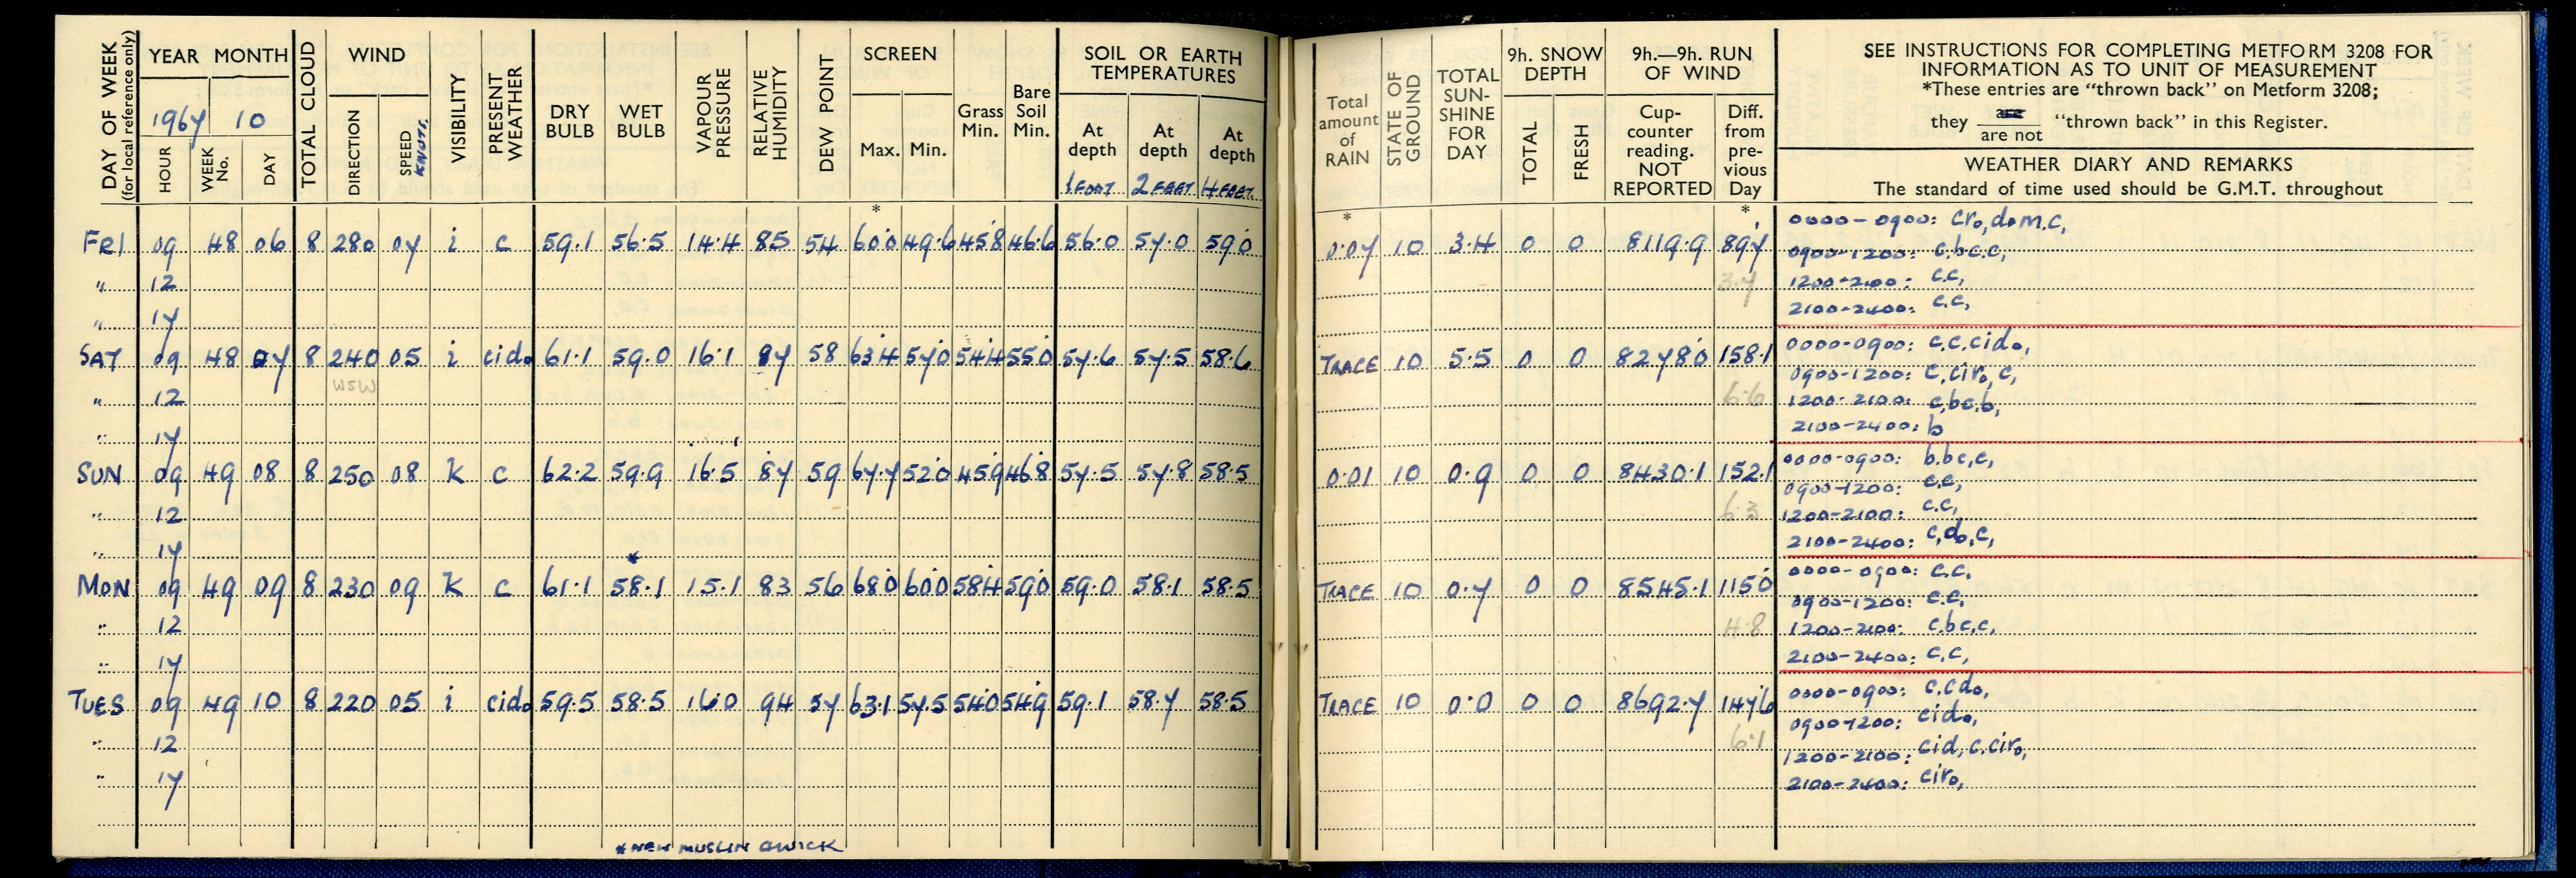 DAY OF WEEK (for local reference only)
YEAR MONTH
1967 10
HOUR
WEEK No.
DAY
TOTAL CLOUD
WIND
DIRECTION
SPEED KNOTS.
VISIBILITY
PRESENT WEATHER
DRY BULB
WET BULB
VAPOUR PRESSURE
RELATIVE HUMIDITY
DEW POINT
SCREEN
Max. Min.
Grass Min.
Bare Soil Min.
SOIL OR EARTH TEMPERATURES
At depth 1 FOOT
At depth 2 FEET
At depth 4 FEET.
Total amount of RAIN
STATE OF GROUND
TOTAL SUN-SHINE FOR DAY
9h. SNOW DEPTH
TOTAL
FRESH
9h.—9h. RUN OF WIND
Cup-counter reading. NOT REPORTED
Diff. from pre-vious Day
SEE INSTRUCTIONS FOR COMPLETING METFORM 3208 FOR
INFORMATION AS TO UNIT OF MEASUREMENT
*These entries are "thrown back" on Metform 3208;
they are / are not "thrown back" in this Register.
WEATHER DIARY AND REMARKS
The standard of time used should be G.M.T. throughout
* * *
FRI 09 48 06 8 280 07 i c 59.1 56.5 14.4 85 54 60.0 49.6 45.8 46.6 56.0 57.0 59.0 0.07 10 3.4 0 0 8119.9 89.7
0000-0900: cr₀,d₀m.c,
0900-1200: c.bc.c,
" 12 3.7 1200-2100: c.c,
" 17 2100-2400: c.c,
SAT 09 48 07 8 240 05 i cid₀ 61.1 59.0 16.1 87 58 63.4 57.0 54.4 55.0 57.6 57.5 58.6 TRACE 10 5.5 0 0 8278.0 158.1
WSW
0000-0900: c.c.cid₀,
0900-1200: c,cir₀,c,
" 12 6.6 1200-2100: c,bc,b,
" 17 2100-2400: b
SUN 09 49 08 8 250 08 k c 62.2 59.9 16.5 87 59 67.7 52.0 45.9 46.8 57.5 57.8 58.5 0.01 10 0.9 0 0 8430.1 152.1
0000-0900: b.bc,c,
0900-1200: c.c,
" 12 6.3 1200-2100: c.c,
" 17 2100-2400: c,d₀,c,
*
MON 09 49 09 8 230 09 k c 61.1 58.1 15.1 83 56 68.0 60.0 58.4 59.0 59.0 58.1 58.5 TRACE 10 0.7 0 0 8545.1 115.0
0000-0900: c.c,
0900-1200: c.c,
" 12 4.8 1200-2100: c.bc.c,
" 17 2100-2400: c.c,
TUES 09 49 10 8 220 05 i cid₀ 59.5 58.5 16.0 94 57 63.1 57.5 54.0 54.9 59.1 58.7 58.5 TRACE 10 0.0 0 0 8692.7 147.6
0000-0900: c.cd₀,
0900-1200: cid₀,
" 12 6.1 1200-2100: cid,c.cir₀,
" 17 2100-2400: cir₀,
* NEW MUSLIN & WICK